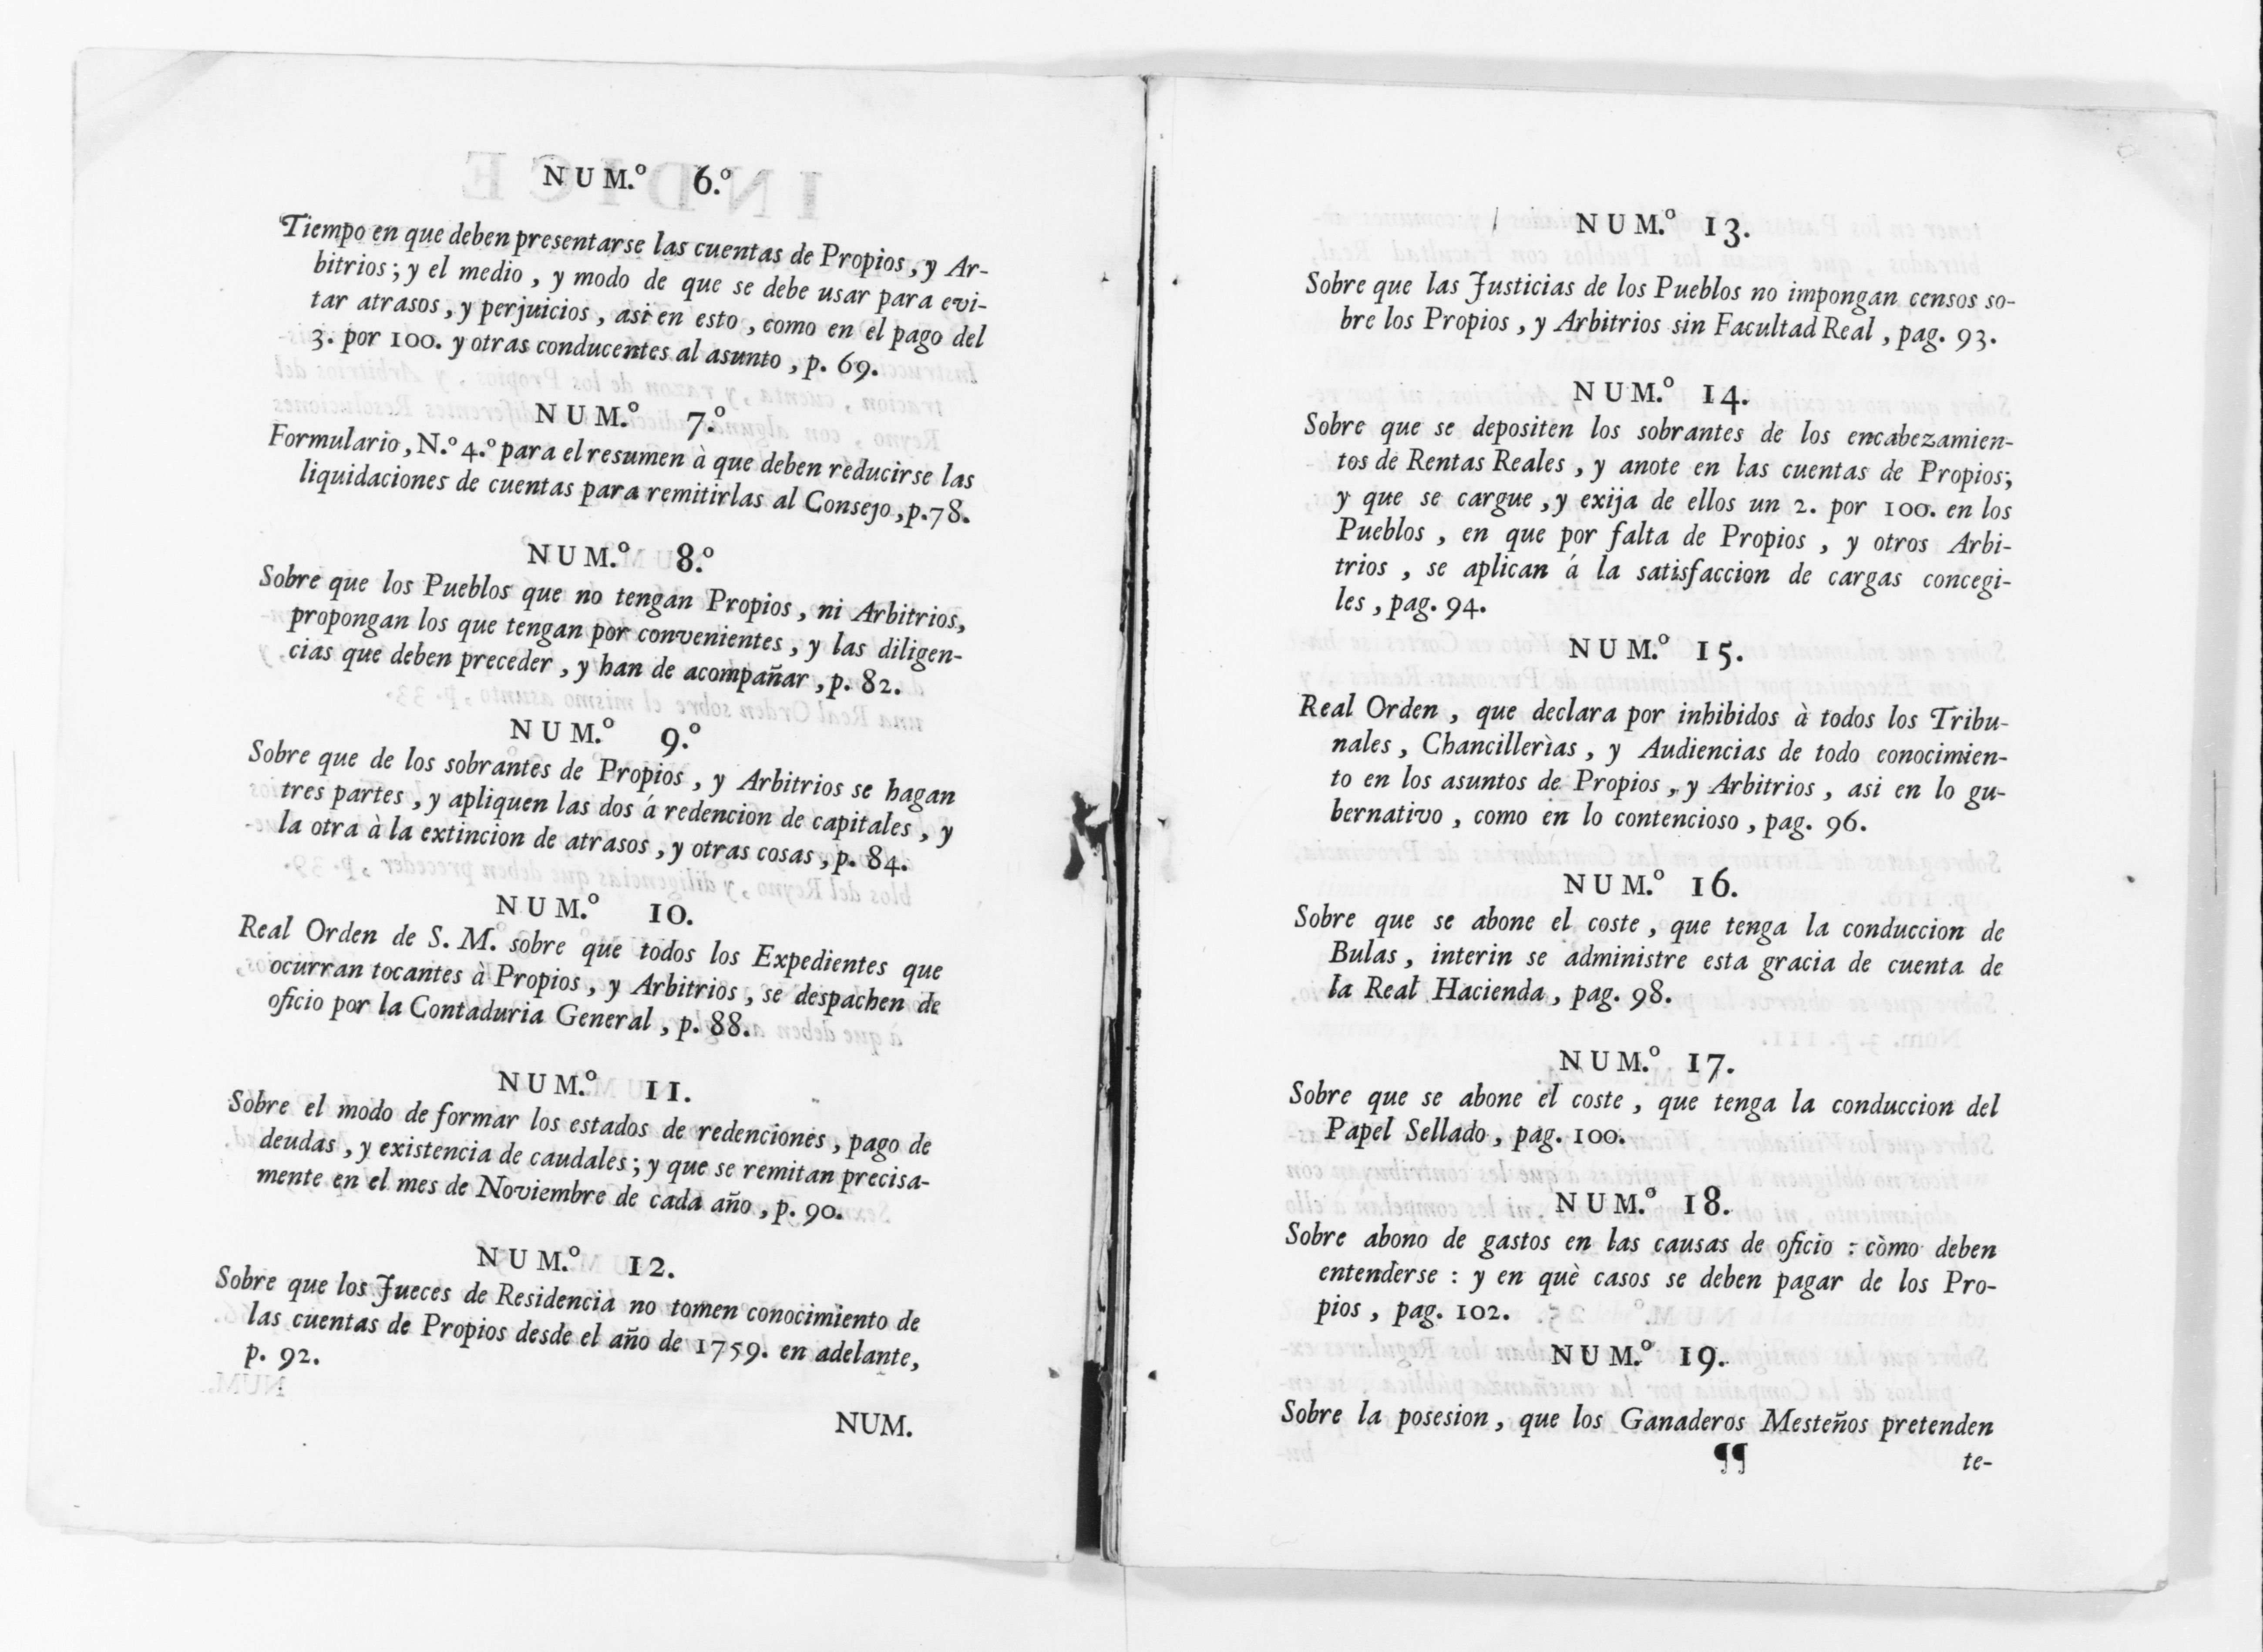 NUM.º 6.º
Tiempo en que deben presentarse las cuentas de Propios, y Ar-
bitrios; y el medio, y modo de que se debe usar para evi-
tar atrasos, y perjuicios, asi en esto, como en el pago del
3. por 100. y otras conducentes al asunto, p. 69.
NUM.º 7.º
Formulario, N.º 4.º para el resumen à que deben reducirse las
liquidaciones de cuentas para remitirlas al Consejo, p. 78.
NUM.º 8.º
Sobre que los Pueblos que no tengan Propios, ni Arbitrios,
propongan los que tengan por convenientes, y las diligen-
cias que deben preceder, y han de acompañar, p. 82.
NUM.º 9.º
Sobre que de los sobrantes de Propios, y Arbitrios se hagan
tres partes, y apliquen las dos á redencion de capitales, y
la otra à la extincion de atrasos, y otras cosas, p. 84.
NUM.º 10.
Real Orden de S. M. sobre que todos los Expedientes que
ocurran tocantes à Propios, y Arbitrios, se despachen de
oficio por la Contaduria General, p. 88.
NUM.º 11.
Sobre el modo de formar los estados de redenciones, pago de
deudas, y existencia de caudales; y que se remitan precisa-
mente en el mes de Noviembre de cada año, p. 90.
NUM.º 12.
Sobre que los Jueces de Residencia no tomen conocimiento de
las cuentas de Propios desde el año de 1759. en adelante,
p. 92.
NUM.
NUM.º 13.
Sobre que las Justicias de los Pueblos no impongan censos so-
bre los Propios, y Arbitrios sin Facultad Real, pag. 93.
NUM.º 14.
Sobre que se depositen los sobrantes de los encabezamien-
tos de Rentas Reales, y anote en las cuentas de Propios;
y que se cargue, y exija de ellos un 2. por 100. en los
Pueblos, en que por falta de Propios, y otros Arbi-
trios, se aplican á la satisfaccion de cargas concegi-
les, pag. 94.
NUM.º 15.
Real Orden, que declara por inhibidos à todos los Tribu-
nales, Chancillerìas, y Audiencias de todo conocimien-
to en los asuntos de Propios, y Arbitrios, asi en lo gu-
bernativo, como en lo contencioso, pag. 96.
NUM.º 16.
Sobre que se abone el coste, que tenga la conduccion de
Bulas, interin se administre esta gracia de cuenta de
la Real Hacienda, pag. 98.
NUM.º 17.
Sobre que se abone el coste, que tenga la conduccion del
Papel Sellado, pag. 100.
NUM.º 18.
Sobre abono de gastos en las causas de oficio : còmo deben
entenderse : y en què casos se deben pagar de los Pro-
pios, pag. 102.
NUM.º 19.
Sobre la posesion, que los Ganaderos Mesteños pretenden
¶¶ te-